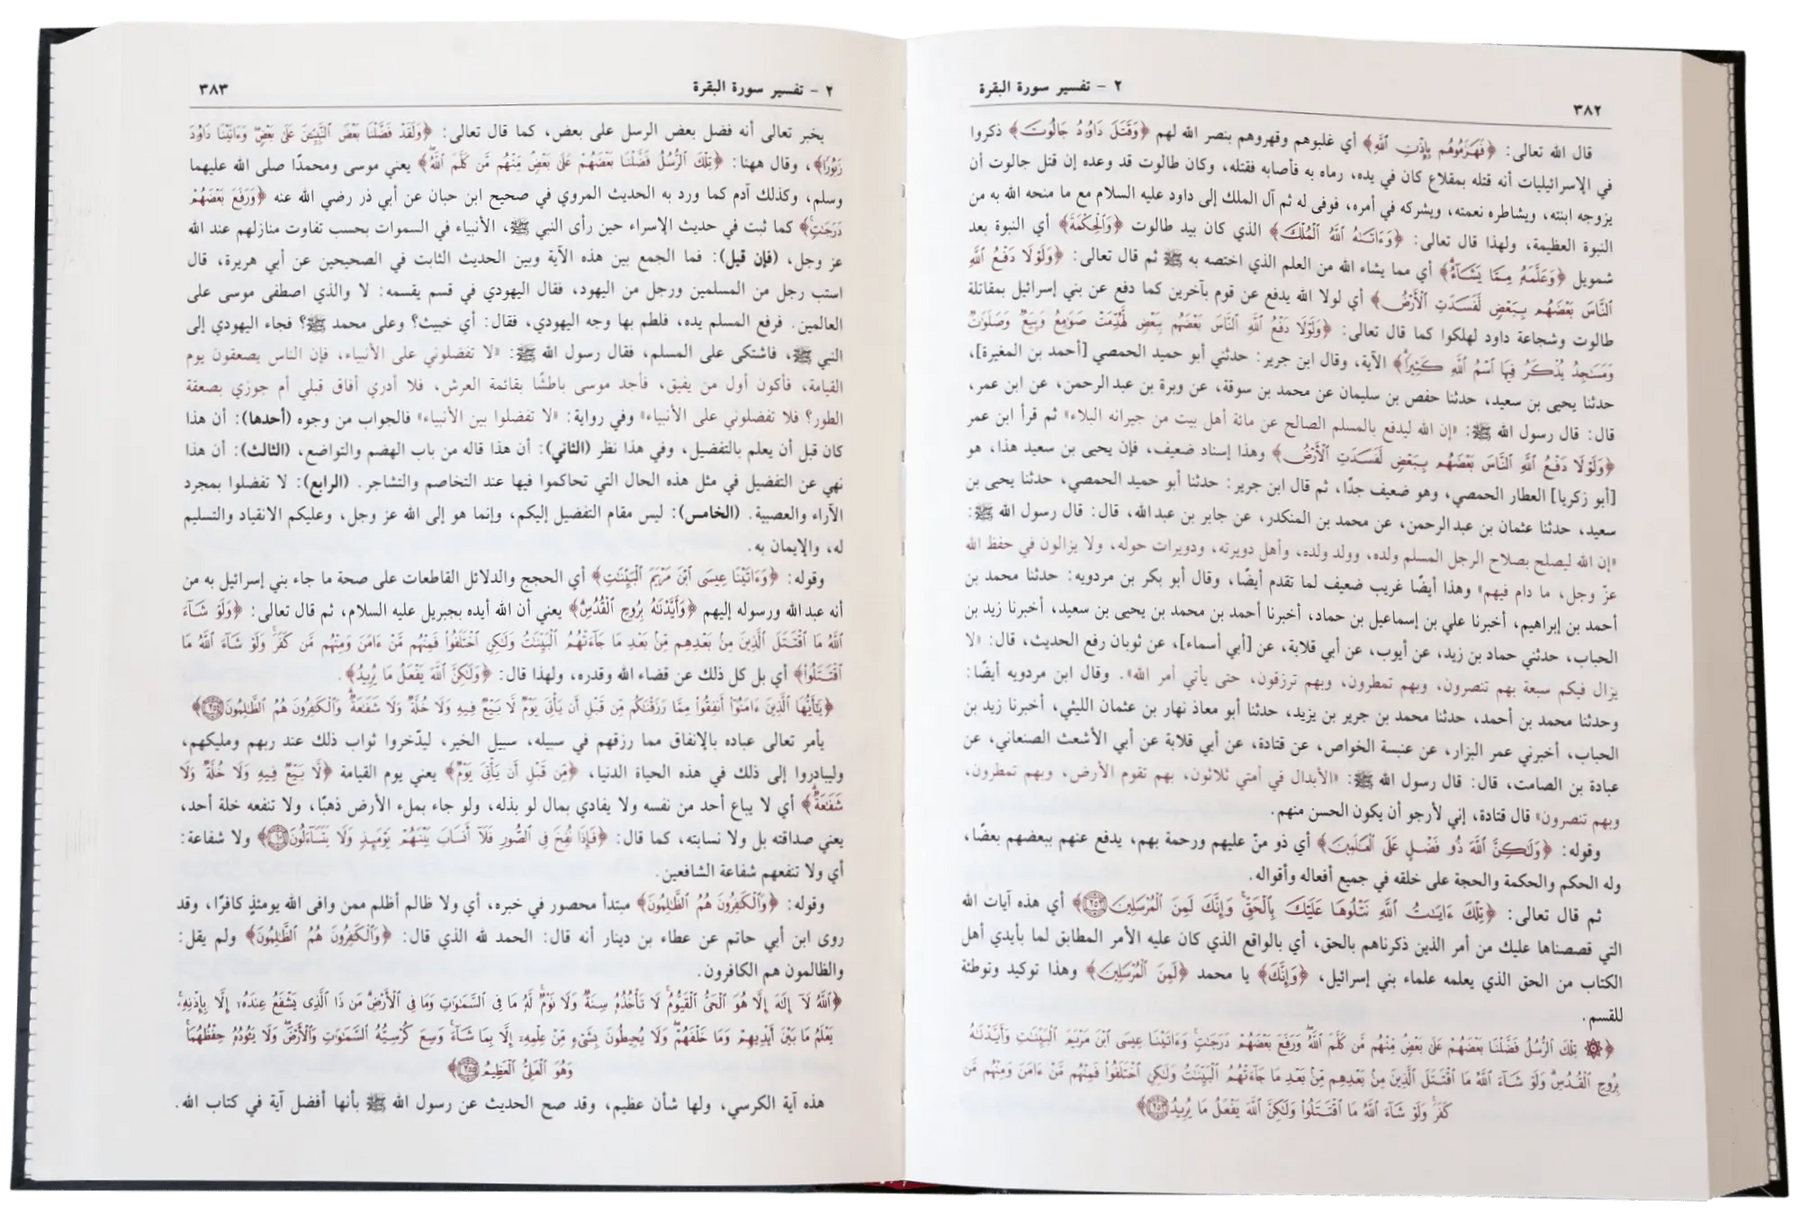 ٢ - تفسير سورة البقرة
٣٨٢
قال الله تعالى: ﴿فَهَزَمُوهُم بِإِذْنِ ٱللَّهِ﴾ أي غلبوهم وقهروهم بنصر الله لهم ﴿وَقَتَلَ دَاوُۥدُ جَالُوتَ﴾ ذكروا
في الإسرائيليات أنه قتله بمقلاع كان في يده، رماه به فأصابه فقتله، وكان طالوت قد وعده إن قتل جالوت أن
يزوجه ابنته، ويشاطره نعمته، ويشركه في أمره، فوفى له ثم آل الملك إلى داود عليه السلام مع ما منحه الله به من
النبوة العظيمة، ولهذا قال تعالى: ﴿وَءَاتَىٰهُ ٱللَّهُ ٱلْمُلْكَ﴾ الذي كان بيد طالوت ﴿وَٱلْحِكْمَةَ﴾ أي النبوة بعد
شمويل ﴿وَعَلَّمَهُۥ مِمَّا يَشَآءُ﴾ أي مما يشاء الله من العلم الذي اختصه به ﷺ ثم قال تعالى: ﴿وَلَوْلَا دَفْعُ ٱللَّهِ
ٱلنَّاسَ بَعْضَهُم بِبَعْضٍ لَّفَسَدَتِ ٱلْأَرْضُ﴾ أي لولا الله يدفع عن قوم بآخرين كما دفع عن بني إسرائيل بمقاتلة
طالوت وشجاعة داود لهلكوا كما قال تعالى: ﴿وَلَوْلَا دَفْعُ ٱللَّهِ ٱلنَّاسَ بَعْضَهُم بِبَعْضٍ لَّهُدِّمَتْ صَوَٰمِعُ وَبِيَعٌ وَصَلَوَٰتٌ
وَمَسَٰجِدُ يُذْكَرُ فِيهَا ٱسْمُ ٱللَّهِ كَثِيرًا﴾ الآية، وقال ابن جرير: حدثني أبو حميد الحمصي [أحمد بن المغيرة]،
حدثنا يحيى بن سعيد، حدثنا حفص بن سليمان عن محمد بن سوقة، عن وبرة بن عبد الرحمن، عن ابن عمر،
قال: قال رسول الله ﷺ: «إن الله ليدفع بالمسلم الصالح عن مائة أهل بيت من جيرانه البلاء» ثم قرأ ابن عمر
﴿وَلَوْلَا دَفْعُ ٱللَّهِ ٱلنَّاسَ بَعْضَهُم بِبَعْضٍ لَّفَسَدَتِ ٱلْأَرْضُ﴾ وهذا إسناد ضعيف، فإن يحيى بن سعيد هذا، هو
[أبو زكريا] العطار الحمصي، وهو ضعيف جدًا، ثم قال ابن جرير: حدثنا أبو حميد الحمصي، حدثنا يحيى بن
سعيد، حدثنا عثمان بن عبد الرحمن، عن محمد بن المنكدر، عن جابر بن عبد الله، قال: قال رسول الله ﷺ:
«إن الله ليصلح بصلاح الرجل المسلم ولده، وولد ولده، وأهل دويرته، ودويرات حوله، ولا يزالون في حفظ الله
عزّ وجل، ما دام فيهم» وهذا أيضًا غريب ضعيف لما تقدم أيضًا، وقال أبو بكر بن مردويه: حدثنا محمد بن
أحمد بن إبراهيم، أخبرنا علي بن إسماعيل بن حماد، أخبرنا أحمد بن محمد بن يحيى بن سعيد، أخبرنا زيد بن
الحباب، حدثني حماد بن زيد، عن أيوب، عن أبي قلابة، عن [أبي أسماء]، عن ثوبان رفع الحديث، قال: «لا
يزال فيكم سبعة بهم تنصرون، وبهم تمطرون، وبهم ترزقون، حتى يأتي أمر الله». وقال ابن مردويه أيضًا:
وحدثنا محمد بن أحمد، حدثنا محمد بن جرير بن يزيد، حدثنا أبو معاذ نهار بن عثمان الليثي، أخبرنا زيد بن
الحباب، أخبرني عمر البزار، عن عنبسة الخواص، عن قتادة، عن أبي قلابة عن أبي الأشعث الصنعاني، عن
عبادة بن الصامت، قال: قال رسول الله ﷺ: «الأبدال في أمتي ثلاثون، بهم تقوم الأرض، وبهم تمطرون،
وبهم تنصرون» قال قتادة، إني لأرجو أن يكون الحسن منهم.
وقوله: ﴿وَلَٰكِنَّ ٱللَّهَ ذُو فَضْلٍ عَلَى ٱلْعَٰلَمِينَ﴾ أي ذو منّ عليهم ورحمة بهم، يدفع عنهم ببعضهم بعضًا،
وله الحكم والحكمة والحجة على خلقه في جميع أفعاله وأقواله.
ثم قال تعالى: ﴿تِلْكَ ءَايَٰتُ ٱللَّهِ نَتْلُوهَا عَلَيْكَ بِٱلْحَقِّ وَإِنَّكَ لَمِنَ ٱلْمُرْسَلِينَ ٢٥٢﴾ أي هذه آيات الله
التي قصصناها عليك من أمر الذين ذكرناهم بالحق، أي بالواقع الذي كان عليه الأمر المطابق لما بأيدي أهل
الكتاب من الحق الذي يعلمه علماء بني إسرائيل، ﴿وَإِنَّكَ﴾ يا محمد ﴿لَمِنَ ٱلْمُرْسَلِينَ﴾ وهذا توكيد وتوطئة
للقسم.
﴿۞ تِلْكَ ٱلرُّسُلُ فَضَّلْنَا بَعْضَهُمْ عَلَىٰ بَعْضٍ مِّنْهُم مَّن كَلَّمَ ٱللَّهُ وَرَفَعَ بَعْضَهُمْ دَرَجَٰتٍ وَءَاتَيْنَا عِيسَى ٱبْنَ مَرْيَمَ ٱلْبَيِّنَٰتِ وَأَيَّدْنَٰهُ
بِرُوحِ ٱلْقُدُسِ وَلَوْ شَآءَ ٱللَّهُ مَا ٱقْتَتَلَ ٱلَّذِينَ مِنۢ بَعْدِهِم مِّنۢ بَعْدِ مَا جَآءَتْهُمُ ٱلْبَيِّنَٰتُ وَلَٰكِنِ ٱخْتَلَفُوا۟ فَمِنْهُم مَّنْ ءَامَنَ وَمِنْهُم مَّن
كَفَرَ وَلَوْ شَآءَ ٱللَّهُ مَا ٱقْتَتَلُوا۟ وَلَٰكِنَّ ٱللَّهَ يَفْعَلُ مَا يُرِيدُ ٢٥٣﴾
٢ - تفسير سورة البقرة
٣٨٣
يخبر تعالى أنه فضل بعض الرسل على بعض، كما قال تعالى: ﴿وَلَقَدْ فَضَّلْنَا بَعْضَ ٱلنَّبِيِّۦنَ عَلَىٰ بَعْضٍ وَءَاتَيْنَا دَاوُۥدَ
زَبُورًا﴾، وقال ههنا: ﴿تِلْكَ ٱلرُّسُلُ فَضَّلْنَا بَعْضَهُمْ عَلَىٰ بَعْضٍ مِّنْهُم مَّن كَلَّمَ ٱللَّهُ﴾ يعني موسى ومحمدًا صلى الله عليهما
وسلم، وكذلك آدم كما ورد به الحديث المروي في صحيح ابن حبان عن أبي ذر رضي الله عنه ﴿وَرَفَعَ بَعْضَهُمْ
دَرَجَٰتٍ﴾ كما ثبت في حديث الإسراء حين رأى النبي ﷺ، الأنبياء في السموات بحسب تفاوت منازلهم عند الله
عز وجل، (فإن قيل): فما الجمع بين هذه الآية وبين الحديث الثابت في الصحيحين عن أبي هريرة، قال
استب رجل من المسلمين ورجل من اليهود، فقال اليهودي في قسم يقسمه: لا والذي اصطفى موسى على
العالمين. فرفع المسلم يده، فلطم بها وجه اليهودي، فقال: أي خبيث؟ وعلى محمد ﷺ؟ فجاء اليهودي إلى
النبي ﷺ، فاشتكى على المسلم، فقال رسول الله ﷺ: «لا تفضلوني على الأنبياء، فإن الناس يصعقون يوم
القيامة، فأكون أول من يفيق، فأجد موسى باطشًا بقائمة العرش، فلا أدري أفاق قبلي أم جوزي بصعقة
الطور؟ فلا تفضلوني على الأنبياء» وفي رواية: «لا تفضلوا بين الأنبياء» فالجواب من وجوه (أحدها): أن هذا
كان قبل أن يعلم بالتفضيل، وفي هذا نظر (الثاني): أن هذا قاله من باب الهضم والتواضع، (الثالث): أن هذا
نهي عن التفضيل في مثل هذه الحال التي تحاكموا فيها عند التخاصم والتشاجر. (الرابع): لا تفضلوا بمجرد
الآراء والعصبية. (الخامس): ليس مقام التفضيل إليكم، وإنما هو إلى الله عز وجل، وعليكم الانقياد والتسليم
له، والإيمان به.
وقوله: ﴿وَءَاتَيْنَا عِيسَى ٱبْنَ مَرْيَمَ ٱلْبَيِّنَٰتِ﴾ أي الحجج والدلائل القاطعات على صحة ما جاء بني إسرائيل به من
أنه عبد الله ورسوله إليهم ﴿وَأَيَّدْنَٰهُ بِرُوحِ ٱلْقُدُسِ﴾ يعني أن الله أيده بجبريل عليه السلام، ثم قال تعالى: ﴿وَلَوْ شَآءَ
ٱللَّهُ مَا ٱقْتَتَلَ ٱلَّذِينَ مِنۢ بَعْدِهِم مِّنۢ بَعْدِ مَا جَآءَتْهُمُ ٱلْبَيِّنَٰتُ وَلَٰكِنِ ٱخْتَلَفُوا۟ فَمِنْهُم مَّنْ ءَامَنَ وَمِنْهُم مَّن كَفَرَ وَلَوْ شَآءَ ٱللَّهُ مَا
ٱقْتَتَلُوا۟﴾ أي بل كل ذلك عن قضاء الله وقدره، ولهذا قال: ﴿وَلَٰكِنَّ ٱللَّهَ يَفْعَلُ مَا يُرِيدُ﴾.
﴿يَٰٓأَيُّهَا ٱلَّذِينَ ءَامَنُوٓا۟ أَنفِقُوا۟ مِمَّا رَزَقْنَٰكُم مِّن قَبْلِ أَن يَأْتِىَ يَوْمٌ لَّا بَيْعٌ فِيهِ وَلَا خُلَّةٌ وَلَا شَفَٰعَةٌ وَٱلْكَٰفِرُونَ هُمُ ٱلظَّٰلِمُونَ ٢٥٤﴾
يأمر تعالى عباده بالإنفاق مما رزقهم في سبيله، سبيل الخير، ليدّخروا ثواب ذلك عند ربهم ومليكهم،
وليبادروا إلى ذلك في هذه الحياة الدنيا، ﴿مِّن قَبْلِ أَن يَأْتِىَ يَوْمٌ﴾ يعني يوم القيامة ﴿لَّا بَيْعٌ فِيهِ وَلَا خُلَّةٌ وَلَا
شَفَٰعَةٌ﴾ أي لا يباع أحد من نفسه ولا يفادي بمال لو بذله، ولو جاء بملء الأرض ذهبًا، ولا تنفعه خلة أحد،
يعني صداقته بل ولا نسابته، كما قال: ﴿فَإِذَا نُفِخَ فِى ٱلصُّورِ فَلَآ أَنسَابَ بَيْنَهُمْ يَوْمَئِذٍ وَلَا يَتَسَآءَلُونَ﴾ ولا شفاعة:
أي ولا تنفعهم شفاعة الشافعين.
وقوله: ﴿وَٱلْكَٰفِرُونَ هُمُ ٱلظَّٰلِمُونَ﴾ مبتدأ محصور في خبره، أي ولا ظالم أظلم ممن وافى الله يومئذٍ كافرًا، وقد
روى ابن أبي حاتم عن عطاء بن دينار أنه قال: الحمد لله الذي قال: ﴿وَٱلْكَٰفِرُونَ هُمُ ٱلظَّٰلِمُونَ﴾ ولم يقل:
والظالمون هم الكافرون.
﴿ٱللَّهُ لَآ إِلَٰهَ إِلَّا هُوَ ٱلْحَىُّ ٱلْقَيُّومُ لَا تَأْخُذُهُۥ سِنَةٌ وَلَا نَوْمٌ لَّهُۥ مَا فِى ٱلسَّمَٰوَٰتِ وَمَا فِى ٱلْأَرْضِ مَن ذَا ٱلَّذِى يَشْفَعُ عِندَهُۥٓ إِلَّا بِإِذْنِهِۦ
يَعْلَمُ مَا بَيْنَ أَيْدِيهِمْ وَمَا خَلْفَهُمْ وَلَا يُحِيطُونَ بِشَىْءٍ مِّنْ عِلْمِهِۦٓ إِلَّا بِمَا شَآءَ وَسِعَ كُرْسِيُّهُ ٱلسَّمَٰوَٰتِ وَٱلْأَرْضَ وَلَا يَـُٔودُهُۥ حِفْظُهُمَا
وَهُوَ ٱلْعَلِىُّ ٱلْعَظِيمُ ٢٥٥﴾
هذه آية الكرسي، ولها شأن عظيم، وقد صح الحديث عن رسول الله ﷺ بأنها أفضل آية في كتاب الله.